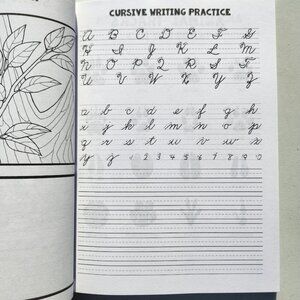 CURSIVE WRITING PRACTICE
A B C D E F G
H I J K L M
N O P Q R S T
U V W X Y Z
a b c d e f g h
i j k l m n o p
q r s t u v w x
y z 1 2 3 4 5 6 7 8 9 0